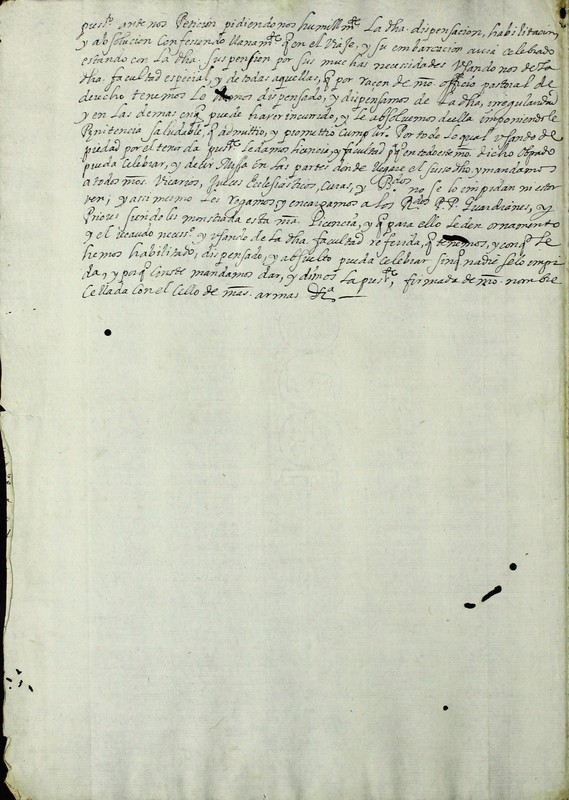 pressᵗᵉ ante nos Peticion pidiendonos humillmᵗᵉ La dha. dispensacion, habilitacion,
y absolucion Confesando llanamᵗᵉ q en el Viaje, y su embarcacion avia celebrado
estando con La dha. suspension por sus muchas necesidades Vsando nos de la
dha. facultad especial, y de todas aquellas, q por raçon de nrō officio pastoral de
derecho tenemos Lo hemos dispensado, y dispensamos de La dha, irregularidad
y en Las demas enq puede haver incurrido, y Le absoluemos de ella imponiendole
Penitencia saludable, q admittio, y prometio cumplir. Por todo Lo qual Vsando de
piedad por el tenor de la pressᵗᵉ Le damos licencia, y facultad pᵃ q en todo este nrō. dicho Obpado
pueda Celebrar, y decir Missa en Las partes donde llegare el susodho, y mandamos
a todos nrōs. Vicarios, Jueces Ecclesiasticos, Curas, y no se lo impidan ni estor
ven; y assi mesmo Les rogamos, y encargamos a los R.ᵈᵒˢ P.P. Guardianes, y
Priores siendoles mostrada esta nrā. Licencia, y q para ello Le den ornamento
y el recaudo necessᵒ y Vsando de La dha. facultad referida, q tenemos, y con q Le
hemos habilitado, dispensado, y absuelto pueda celebrar sin q nadie se lo impi
da, y porq conste mandamos dar, y dimos La pressᵗᵉ, firmada de nrō. nombre
Cellada con el Cello de nrās. armas &ᵃ